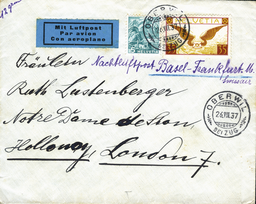 12 gr.
Mit Luftpost
Par avion
Con aeroplano
HELVETIA
35
Fräulein Nachtluftpost Basel-Frankfurt M.
Ruth Lustenberger
Notre Dame de Sion
Holloway, London 7.
OBERWIL
26.VIII.37
BEI ZUG